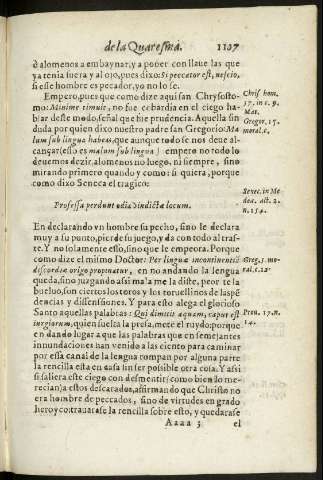 de la Quaresma. 1127
ò alomenos a embaynar, y a poner con llaue las que
ya tenia fuera y al ojo, pues dixo: Si peccator est, nescio,
si esse hombre es pecador, yo no lo se.
Empero, pues que como dize aqui san Chrysosto-
mo: Minime timuit, no fue cobardia en el ciego ha-
blar deste modo, señal que fue prudencia. Aquella sin
duda por quien dixo nuestro padre san Gregorio: Ma
lum sub lingua habeas, que aunque todo se nos deue al-
cançar (esto es malum sub lingua) empero no todo lo
deuemos dezir, alomenos no luego, ni siempre, sino
mirando primero quando y como: si quiera, porque
como dixo Seneca el tragico:
Professa perdunt odia vindictæ locum.
En declarando vn hombre su pecho, sino le declara
muy a su punto, pierde su juego, y da con todo al tras-
te. Y no solamente esso, sino que le empeora. Porque
como dize el mismo Doctor: Per lingua incontinentiã
discordiæ origo propinatur, en no andando la lengua
queda, sino juzgando assi mala me la diste, peor te la
buelvo, son ciertos los toros y los toruellinos de las pẽ-
dencias y dissensiones. Y para esto alega el glorioso
Santo aquellas palabras: Qui dimitit aquam, caput est
iurgiorum, quien suelta la presa, mete el ruydo: porque
en dando lugar a que las palabras que en semejantes
innundaciones han venido a las ciento para caminar
por essa canal de la lengua rompan por alguna parte
la renzilla esta en casa sin ser possible otra cosa. Y assi
si saliera este ciego con desmentir (como bien lo me-
recian) a estos descarados, affirmando que Christo no
era hombre de peccados, sino de virtudes en grado
heroy co trauarase la renzilla sobre esto, y quedarase
Aaaa 3 el
Chris. hom.
57. in c. 9.
Mat.
Gregor. 15.
moral. c.
Senec. in Me
dea. Act. 2.
n. 154.
Greg. 5. mo-
ral. c. 12.
Prou. 17. n.
14.